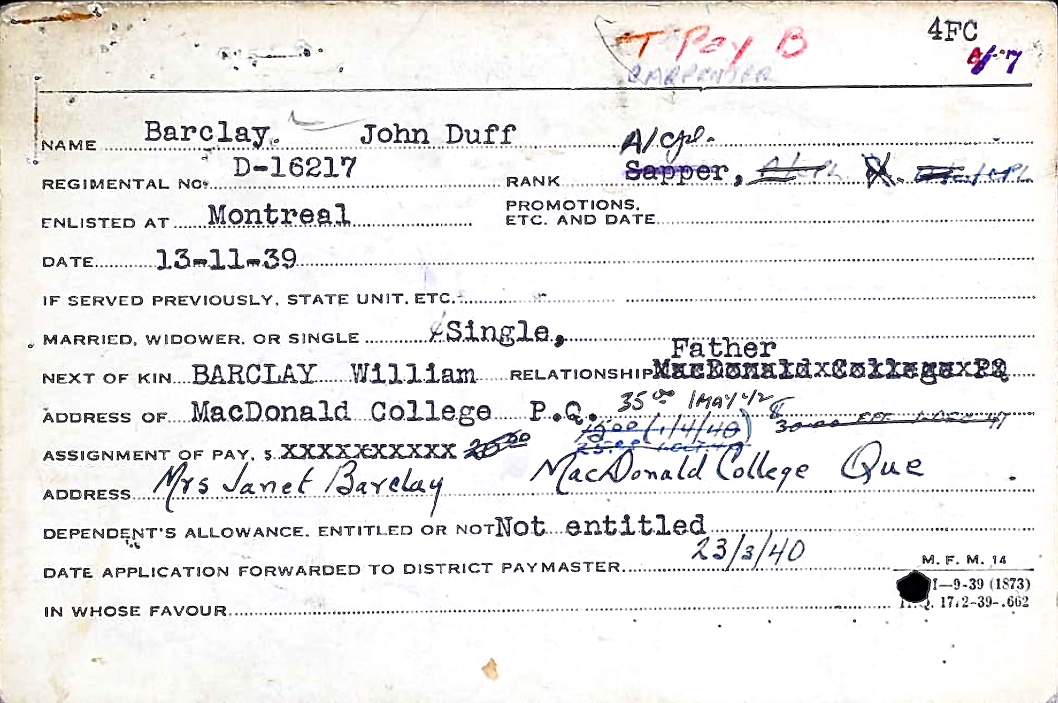 T Pay B 4FC
CARPENTER 7
NAME Barclay, John Duff A/Cpl.
REGIMENTAL NO. D-16217 RANK Sapper,
ENLISTED AT Montreal PROMOTIONS, ETC. AND DATE
DATE 13-11-39
IF SERVED PREVIOUSLY, STATE UNIT, ETC.
MARRIED, WIDOWER, OR SINGLE Single,
Father
NEXT OF KIN BARCLAY William RELATIONSHIP MacDonaldxCollegexPQ
ADDRESS OF MacDonald College P.Q. 35 00 1 MAY 42
15.00 (1/4/40)
ASSIGNMENT OF PAY, $ XXXXXXXXXX 20 00
ADDRESS Mrs Janet Barclay MacDonald College Que
DEPENDENT'S ALLOWANCE, ENTITLED OR NOT Not entitled
DATE APPLICATION FORWARDED TO DISTRICT PAYMASTER 23/3/40
M. F. M. 14
I—9-39 (1873)
IN WHOSE FAVOUR Q. 1772-39-.662